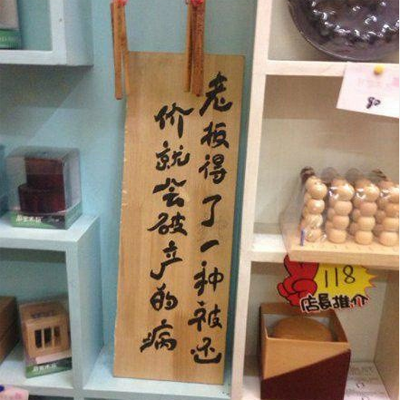 老板得了一种被还
价就会破产的病
80
118
店長推介